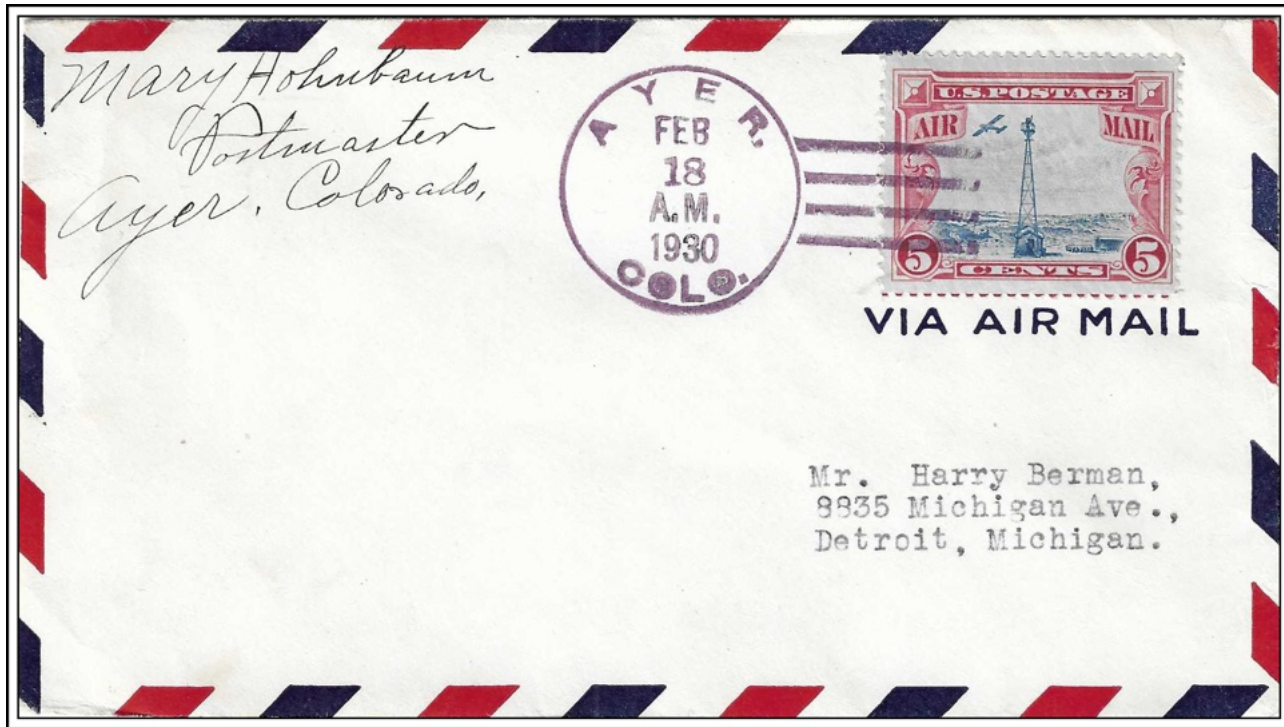 Mary Hohnbaum
Postmaster
Ayer, Colorado,
AYER.
FEB
18
A.M.
1930
COLO.
U.S. POSTAGE
AIR MAIL
5 CENTS 5
VIA AIR MAIL
Mr. Harry Berman,
8835 Michigan Ave.,
Detroit, Michigan.